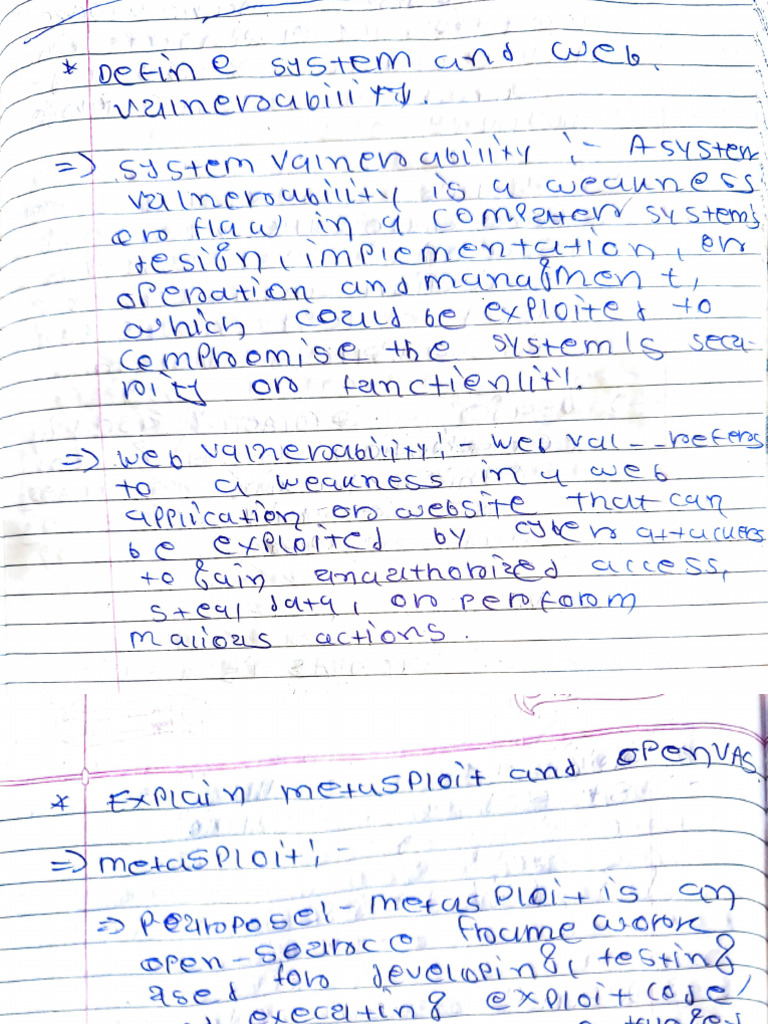 * Define system and web.
vulnerability.
=> system vulnerability :- A system
vulnerability is a weakness
or flaw in a computer system's
design, implementation, or
operation and managment,
which could be exploited to
compromise the system's secu-
rity or functionlity.
=> web vulnerability :- web vul-- refers
to a weakness in a web
application or website that can
be exploited by cyber attackers
to gain unauthorized access,
steal data, or perform
malious actions.
* Explain metasploit and openVAS
=> metasploit :-
=> Purpose :- metasploit is an
open-source frame work
used for developing, testing
and executing exploit code